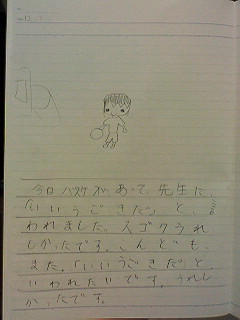 今日バスケがあって、先生に、
「いいうごきだ」と、い
われました。スゴクうれ
しかったです。こんども、
また。「いいうごきだ」と
いわれたいです。うれし
かったです。